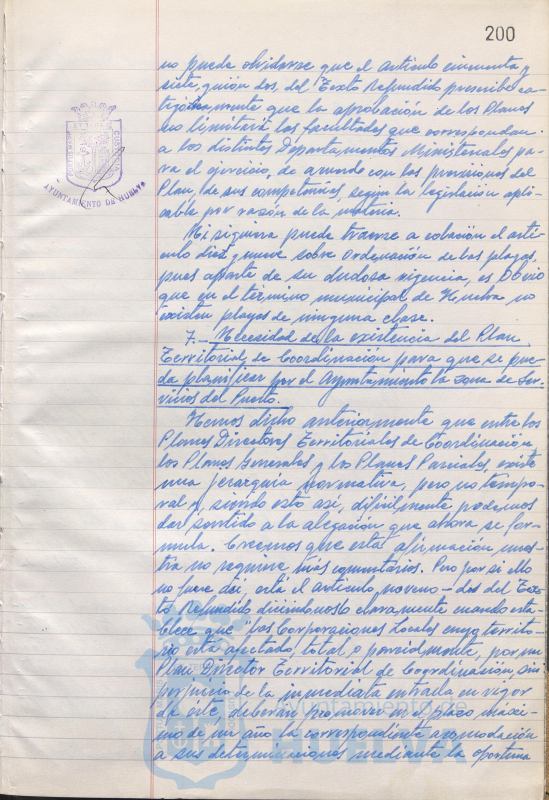 200
no puede olvidarse que el artículo cincuenta y
siete, guión dos, del Texto Refundido prescribe ca-
tegóricamente que la aprobación de los Planes
no limitará las facultades que correspondan
a los distintos Departamentos Ministeriales pa-
ra el ejercicio, de acuerdo con las previsiones del
Plan, de sus competencias, según la legislación apli-
cable por razón de la materia.
Ni siquiera puede traerse a colación el artí-
culo diez y nueve sobre Ordenación de las playas,
pues aparte de su dudosa vigencia, es Obvio
que en el término municipal de Huelva no
existen playas de ninguna clase.
7.- Necesidad de la existencia del Plan
Territorial, de Coordinación para que se pue-
da planificar por el Ayuntamiento la zona de Ser-
vicios del Puerto.
Hemos dicho anteriormente que entre los
Planes Directores Territoriales de Coordinación,
los Planes Generales y los Planes Parciales, existe
una jerarquía normativa, pero no tempo-
ral y, siendo esto así, difícilmente podemos
dar sentido a la alegación que ahora se for-
mula. Creemos que esta afirmación nues-
tra no requiere más comentarios. Pero por si ello
no fuere así, está el artículo noveno - dos del Tex-
to Refundido diciéndonoslo claramente, cuando esta-
blece que "Las Corporaciones Locales cuyo territo-
rio esté afectado, total o parcialmente, por un
Plan Director Territorial de Coordinación, sin
perjuicio de la inmediata entrada en vigor
de éste, deberán promover en el plazo máxi-
mo de un año la correspondiente acomodación
a sus determinaciones mediante la oportuna
AYUNTAMIENTO DE HUELVA
Ayuntamiento de
HUELVA